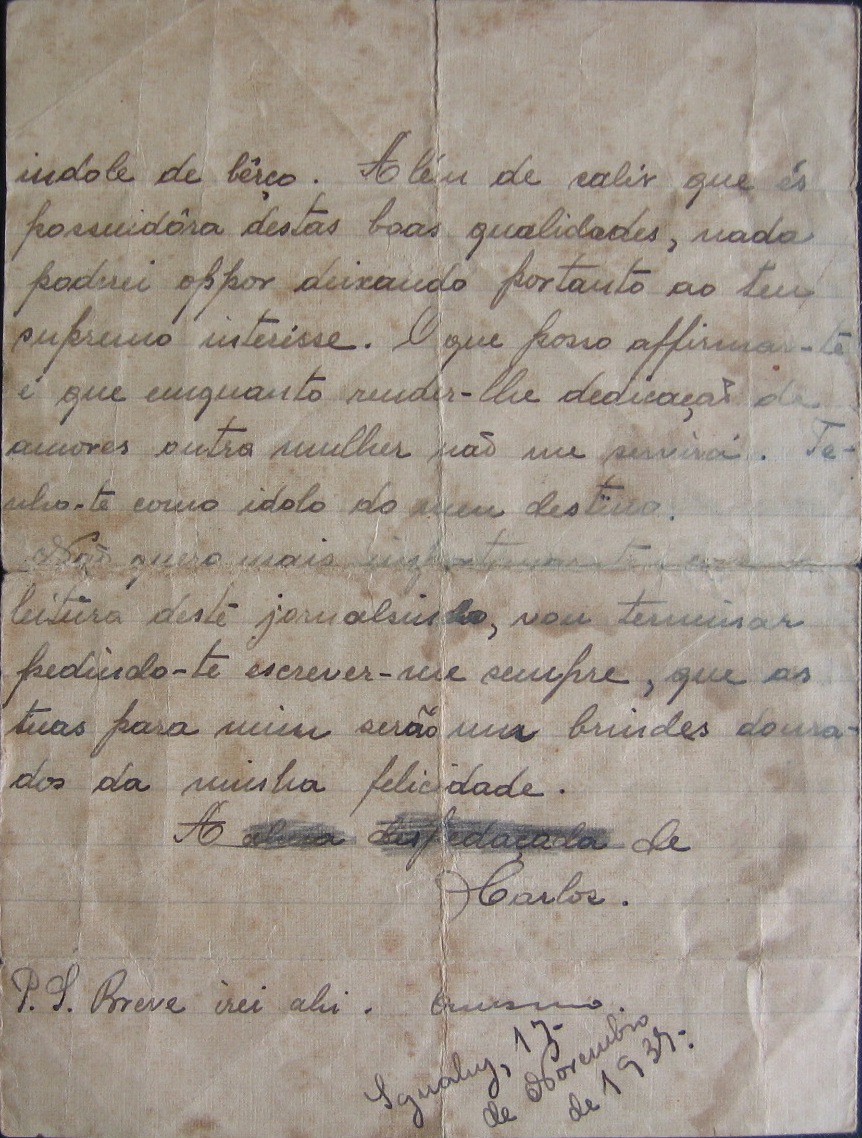 indole de bêrço. Além de calir que és
possuidôra destas boas qualidades, nada
poderei oppor deixando portanto ao teu
supremo interêsse. O que posso affirmar-te
é que emquanto render-lhe dedicação de
amores outra mulher não me servirá. Te-
nho-te como idolo do meu destino.
Não quero mais
leitura deste jornalsinho, vou terminar
pedindo-te escrever-me sempre, que as
tuas para mim serão um brindes doura-
dos da minha felicidade.
A alma despedaçada de
Carlos.
P.S. Breve irei ahi. O mesmo.
de Novembro